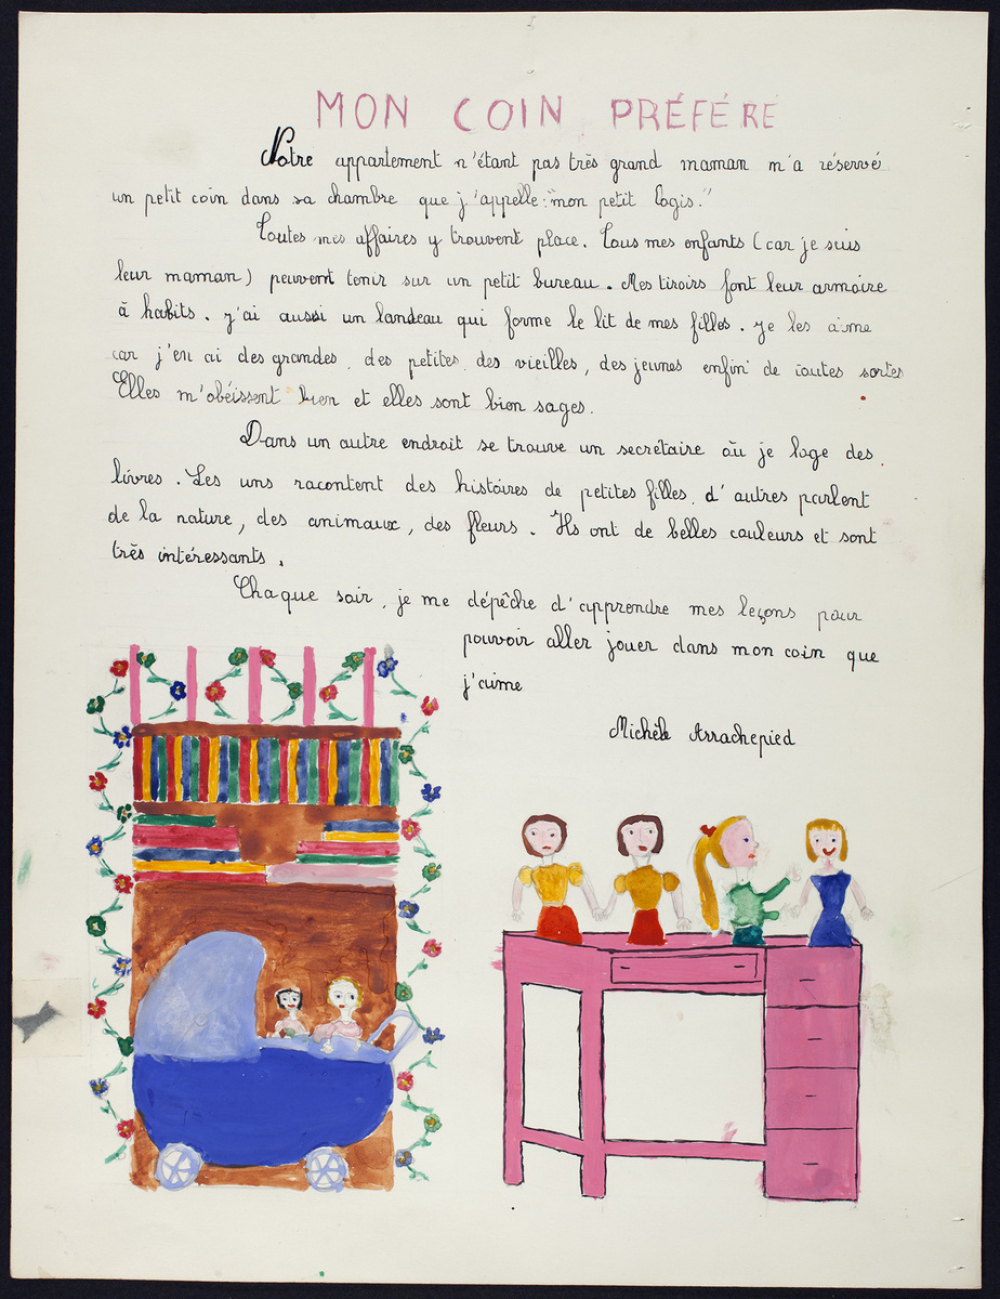 MON COIN PRÉFÉRÉ
Notre appartement n'étant pas très grand maman m'a réservé
un petit coin dans sa chambre que j'appelle : "mon petit logis."
Toutes mes affaires y trouvent place. Tous mes enfants (car je suis
leur maman) peuvent tenir sur un petit bureau. Mes tiroirs font leur armoire
à habits. j'ai aussi un landeau qui forme le lit de mes filles. Je les aime
car j'en ai des grandes, des petites, des vieilles, des jeunes enfin de toutes sortes
Elles m'obéissent bien et elles sont bien sages.
Dans un autre endroit se trouve un secrétaire où je loge des
livres. Les uns racontent des histoires de petites filles, d'autres parlent
de la nature, des animaux, des fleurs. Ils ont de belles couleurs et sont
très intéressants.
Chaque soir, je me dépêche d'apprendre mes leçons pour
pouvoir aller jouer dans mon coin que
j'aime
Michèle Arrachepied